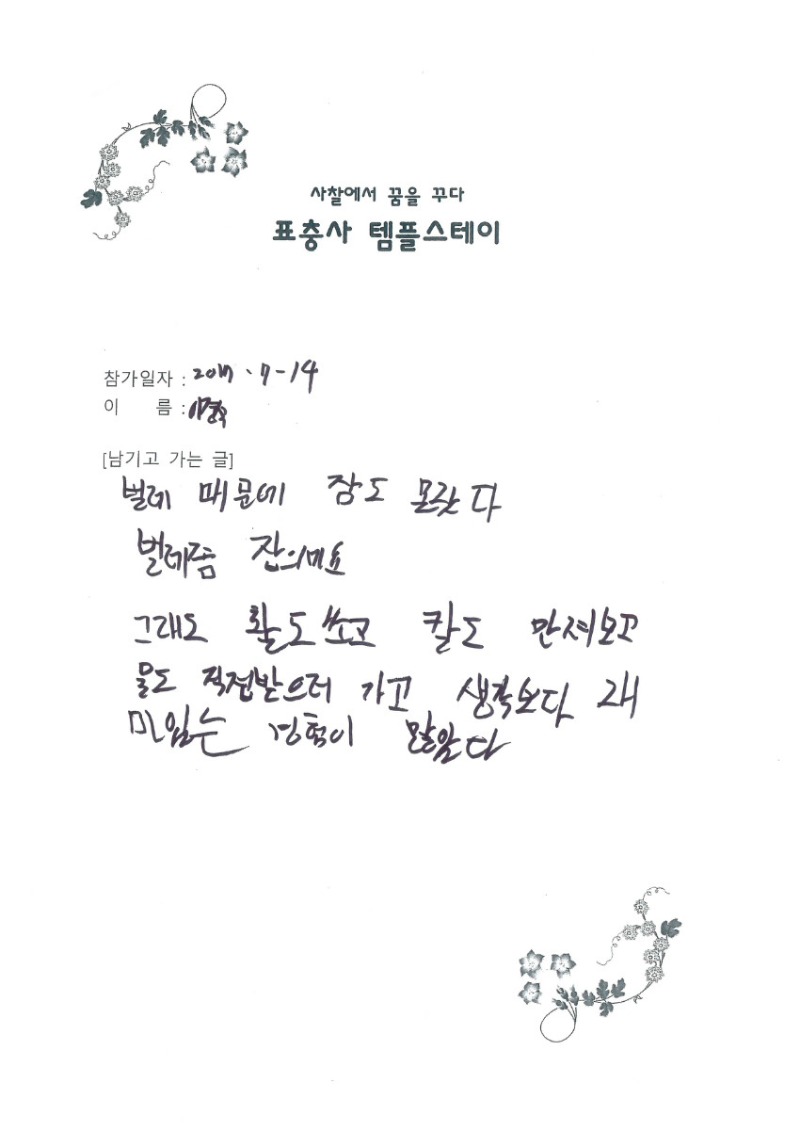 사찰에서 꿈을 꾸다
표충사 템플스테이
참가일자 : 2017 . 7 - 14
이 름 :
[남기고 가는 글]
벌레 때문에 잠도 못잣다
벌레좀 잡으세요
그래도 활도쏘고 칼도 만져보고
물도 직접받으러 가고 생각보다 재
미있는 경험이 많았다